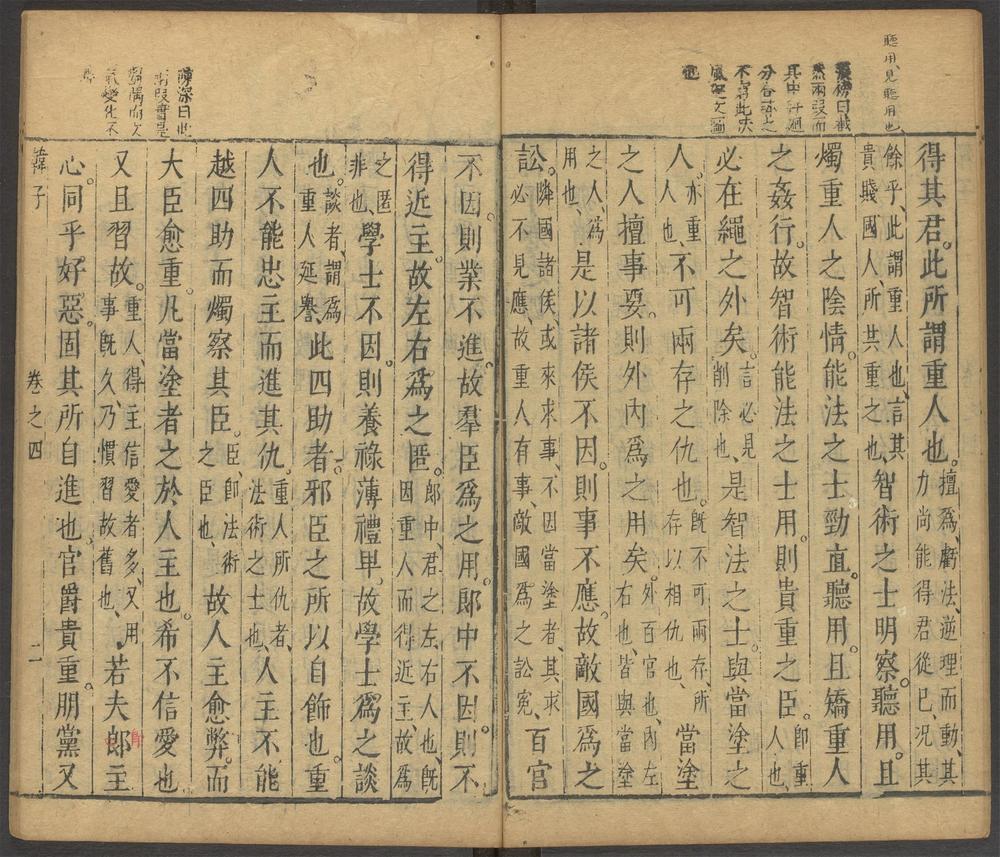 聽用見聽用也
得其君此所謂重人也擅為虧法逆理而動其力尚能得君從己况其
餘乎此謂重人也言其貴賤國人所共重之也智術之士明察聽用且
燭重人之陰情能法之士勁直聽用且矯重人
之姦行故智術能法之士用則貴重之臣即重人也
必在繩之外矣言必見削除也是智法之士與當塗之
人亦重人也不可兩存之仇也既不可兩存所存以相仇也當塗
之人擅事要則外內為之用矣外百官也內左右也皆與當塗
之人為用也是以諸侯不因則事不應故敵國為之
訟隣國諸侯或來求事不因當塗者其求必不見應故重人有事敵國為之訟冤百官
不因則業不進故羣臣為之用郎中不因則不
得近主故左右為之匿郎中君之左右人也既因重人而得近主故為
之匿非也學士不因則養祿薄禮卑故學士為之談
也談者謂為重人延譽此四助者邪臣之所以自飾也重
人不能忠主而進其仇重人所仇者法術之士也人主不能
越四助而燭察其臣臣即法術之臣也故人主愈弊而
大臣愈重凡當塗者之於人主也希不信愛也
又且習故重人得主信愛者多又用事既久乃慣習故舊也若夫郎主
心同乎好惡固其所自進也官爵貴重朋黨又
韓子
卷之四
二